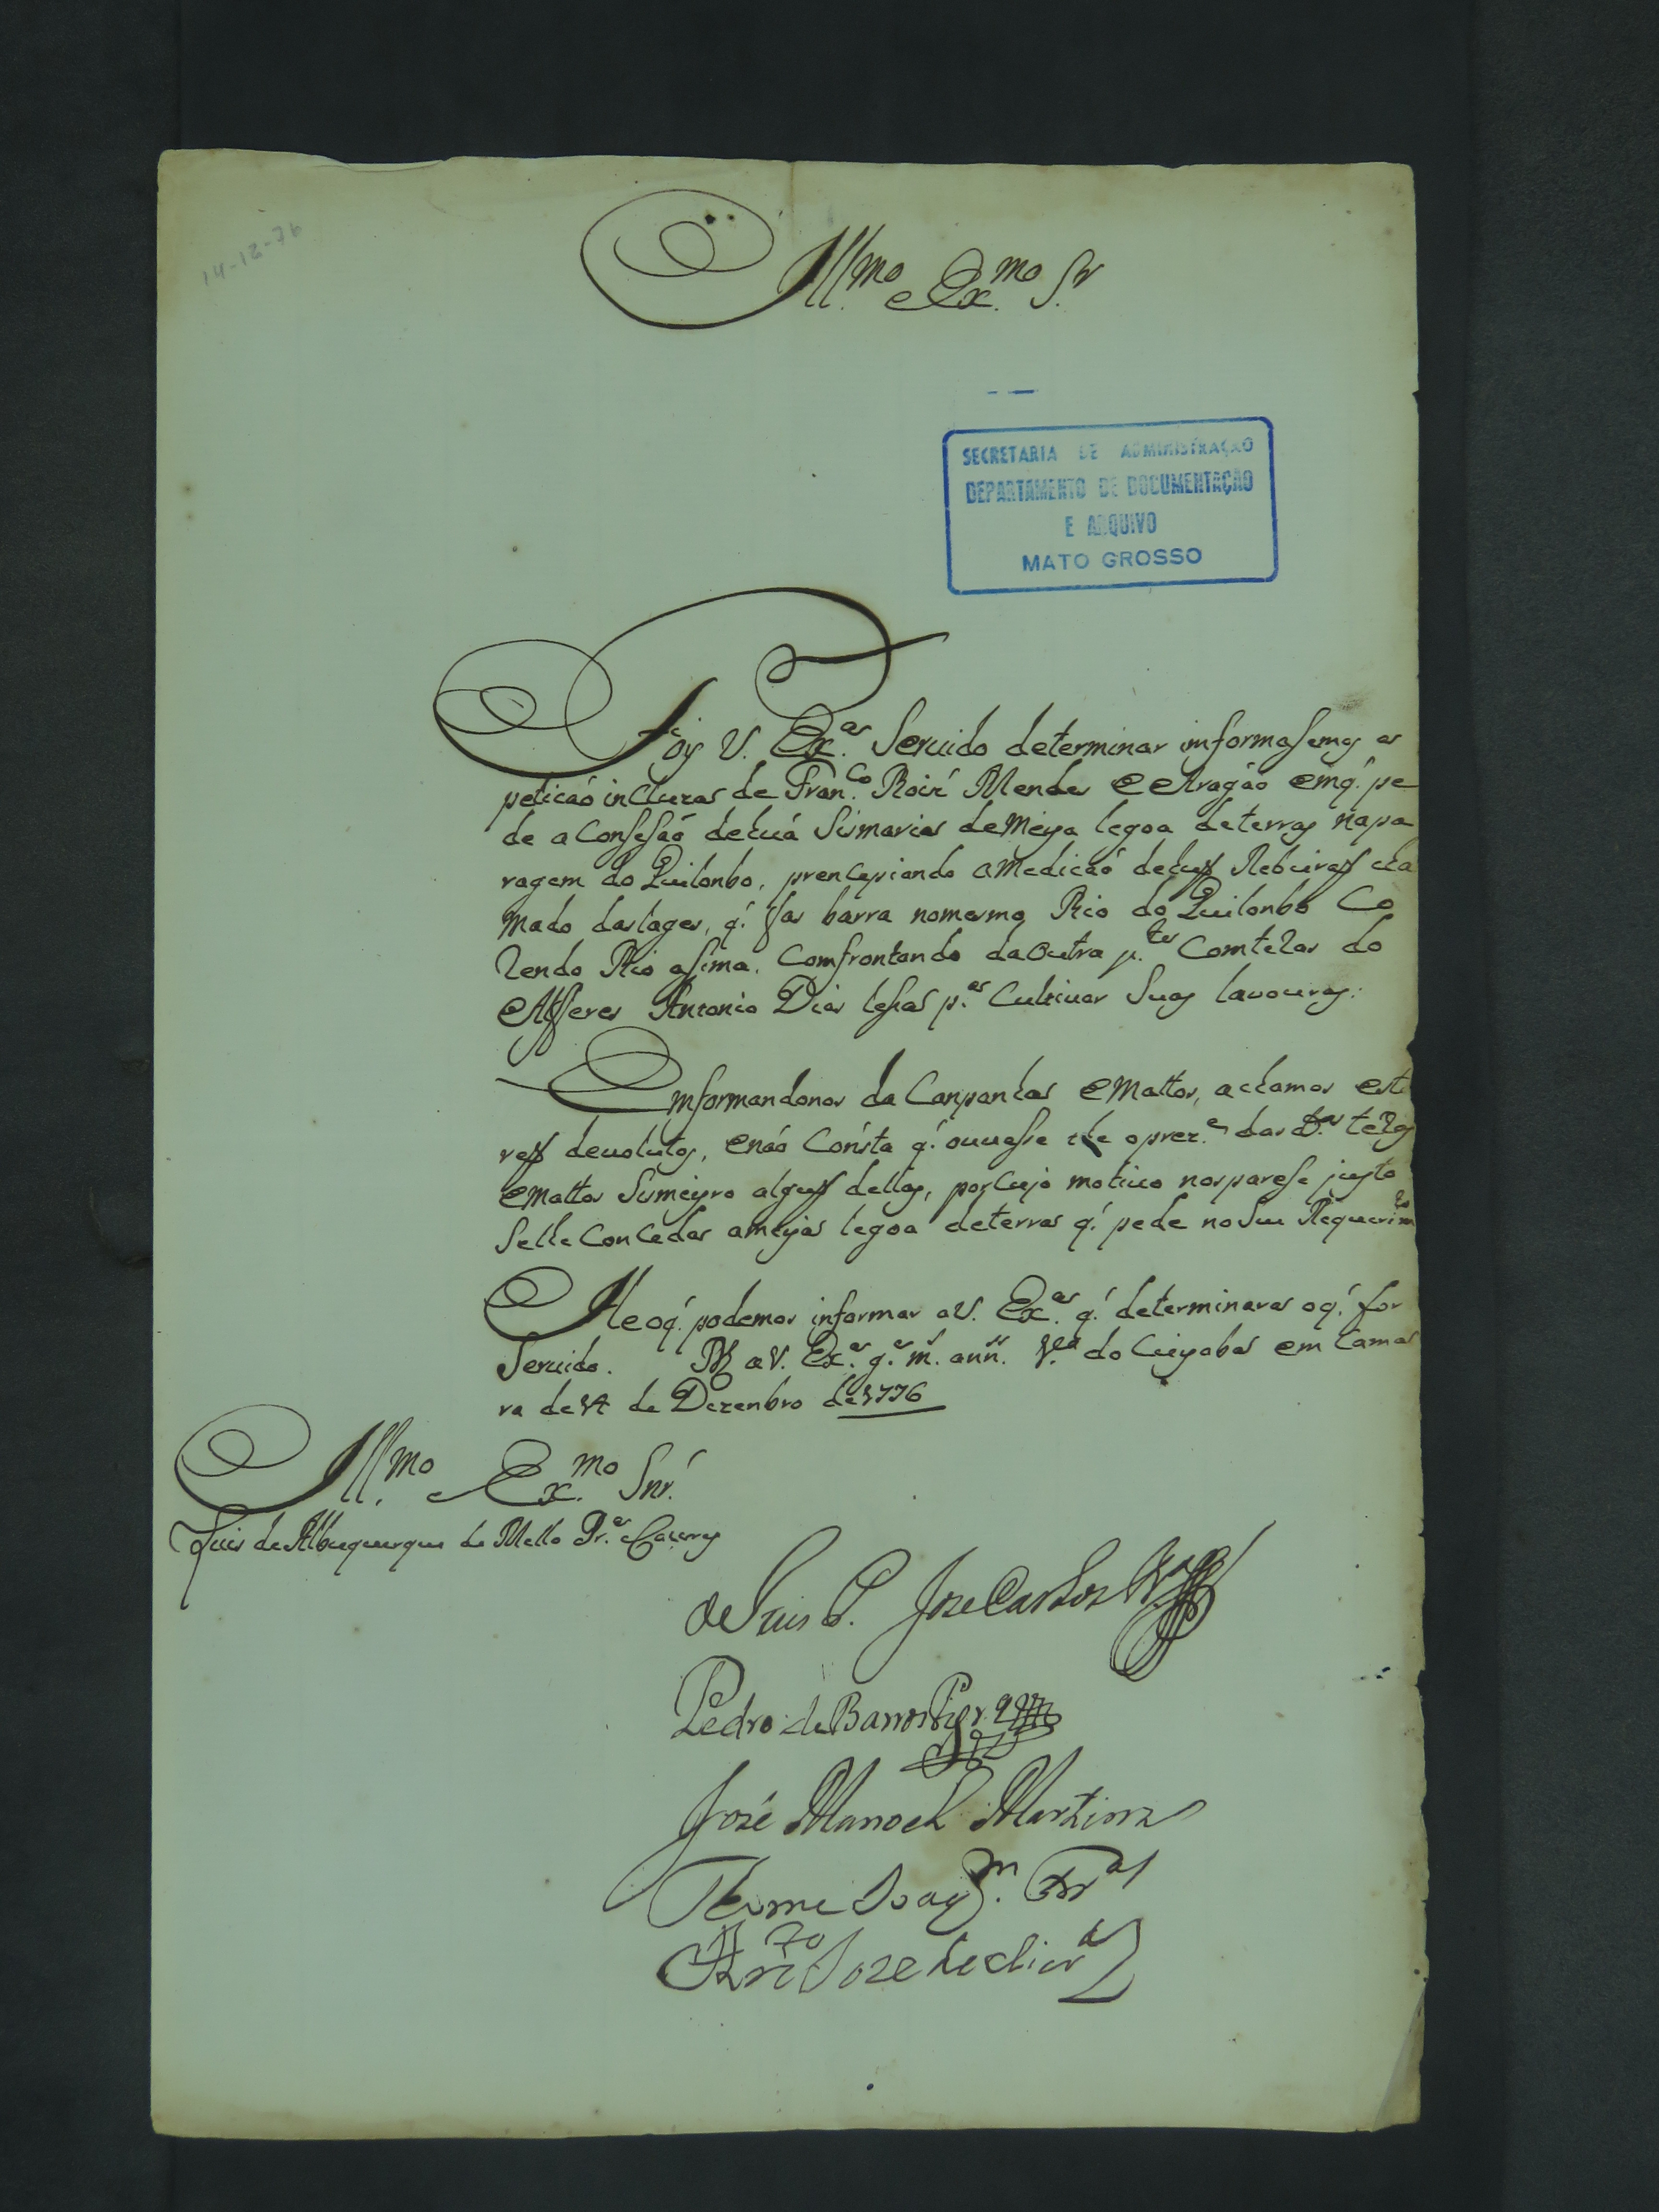 14-12-76
Ill.mo e Ex.mo S.r
SECRETARIA DE ADMINISTRAÇÃO
DEPARTAMENTO DE DOCUMENTAÇÃO
E ARQUIVO
MATO GROSSO
Foy V. Ex.a Servido determinar imformasemos a
peticaó incluza de Fran.co Roiz Mendes e Aragáo emq. pe
de a Consesaó dehuá Sismaria demeya legoa deterras napa
ragem do Quilonbo, prencipiando amedicaó dehuș Rebeiraș cha
mado das lages, q. fas barra nomesmo Rio do Quilonbo Co
rendo Rio asima. Comfrontando daoutra p.te Comteras do
Alferes Antonio Dias lesa p.a Cultivar Suas lavouras.
Emformandonos da Canpanha e Mattos, achamos este
devolutos, enáo Consta q. ouvesse the oprez.e das d.as teras
emattos Sismeyro algus dellas, porCujo motivo nosparese justo
Selle Conceda ameya legoa deterras q. pede no Seu Requerim.to
He oq. podemos informar aV. Ex.a q. determinara oq. for
Servido. aV. Ex.a g.e m. ann. V.a do Cuyaba em Cama
ra de 14 de Dezenbro de 1776
Ill.mo e Ex.mo Snr.
Luis de Albuquerque de Mello Pr.a e Caceres
Joze Carlos
Pedro de Barros
José Manoel Martins
Thome Joaq.m
Joze de